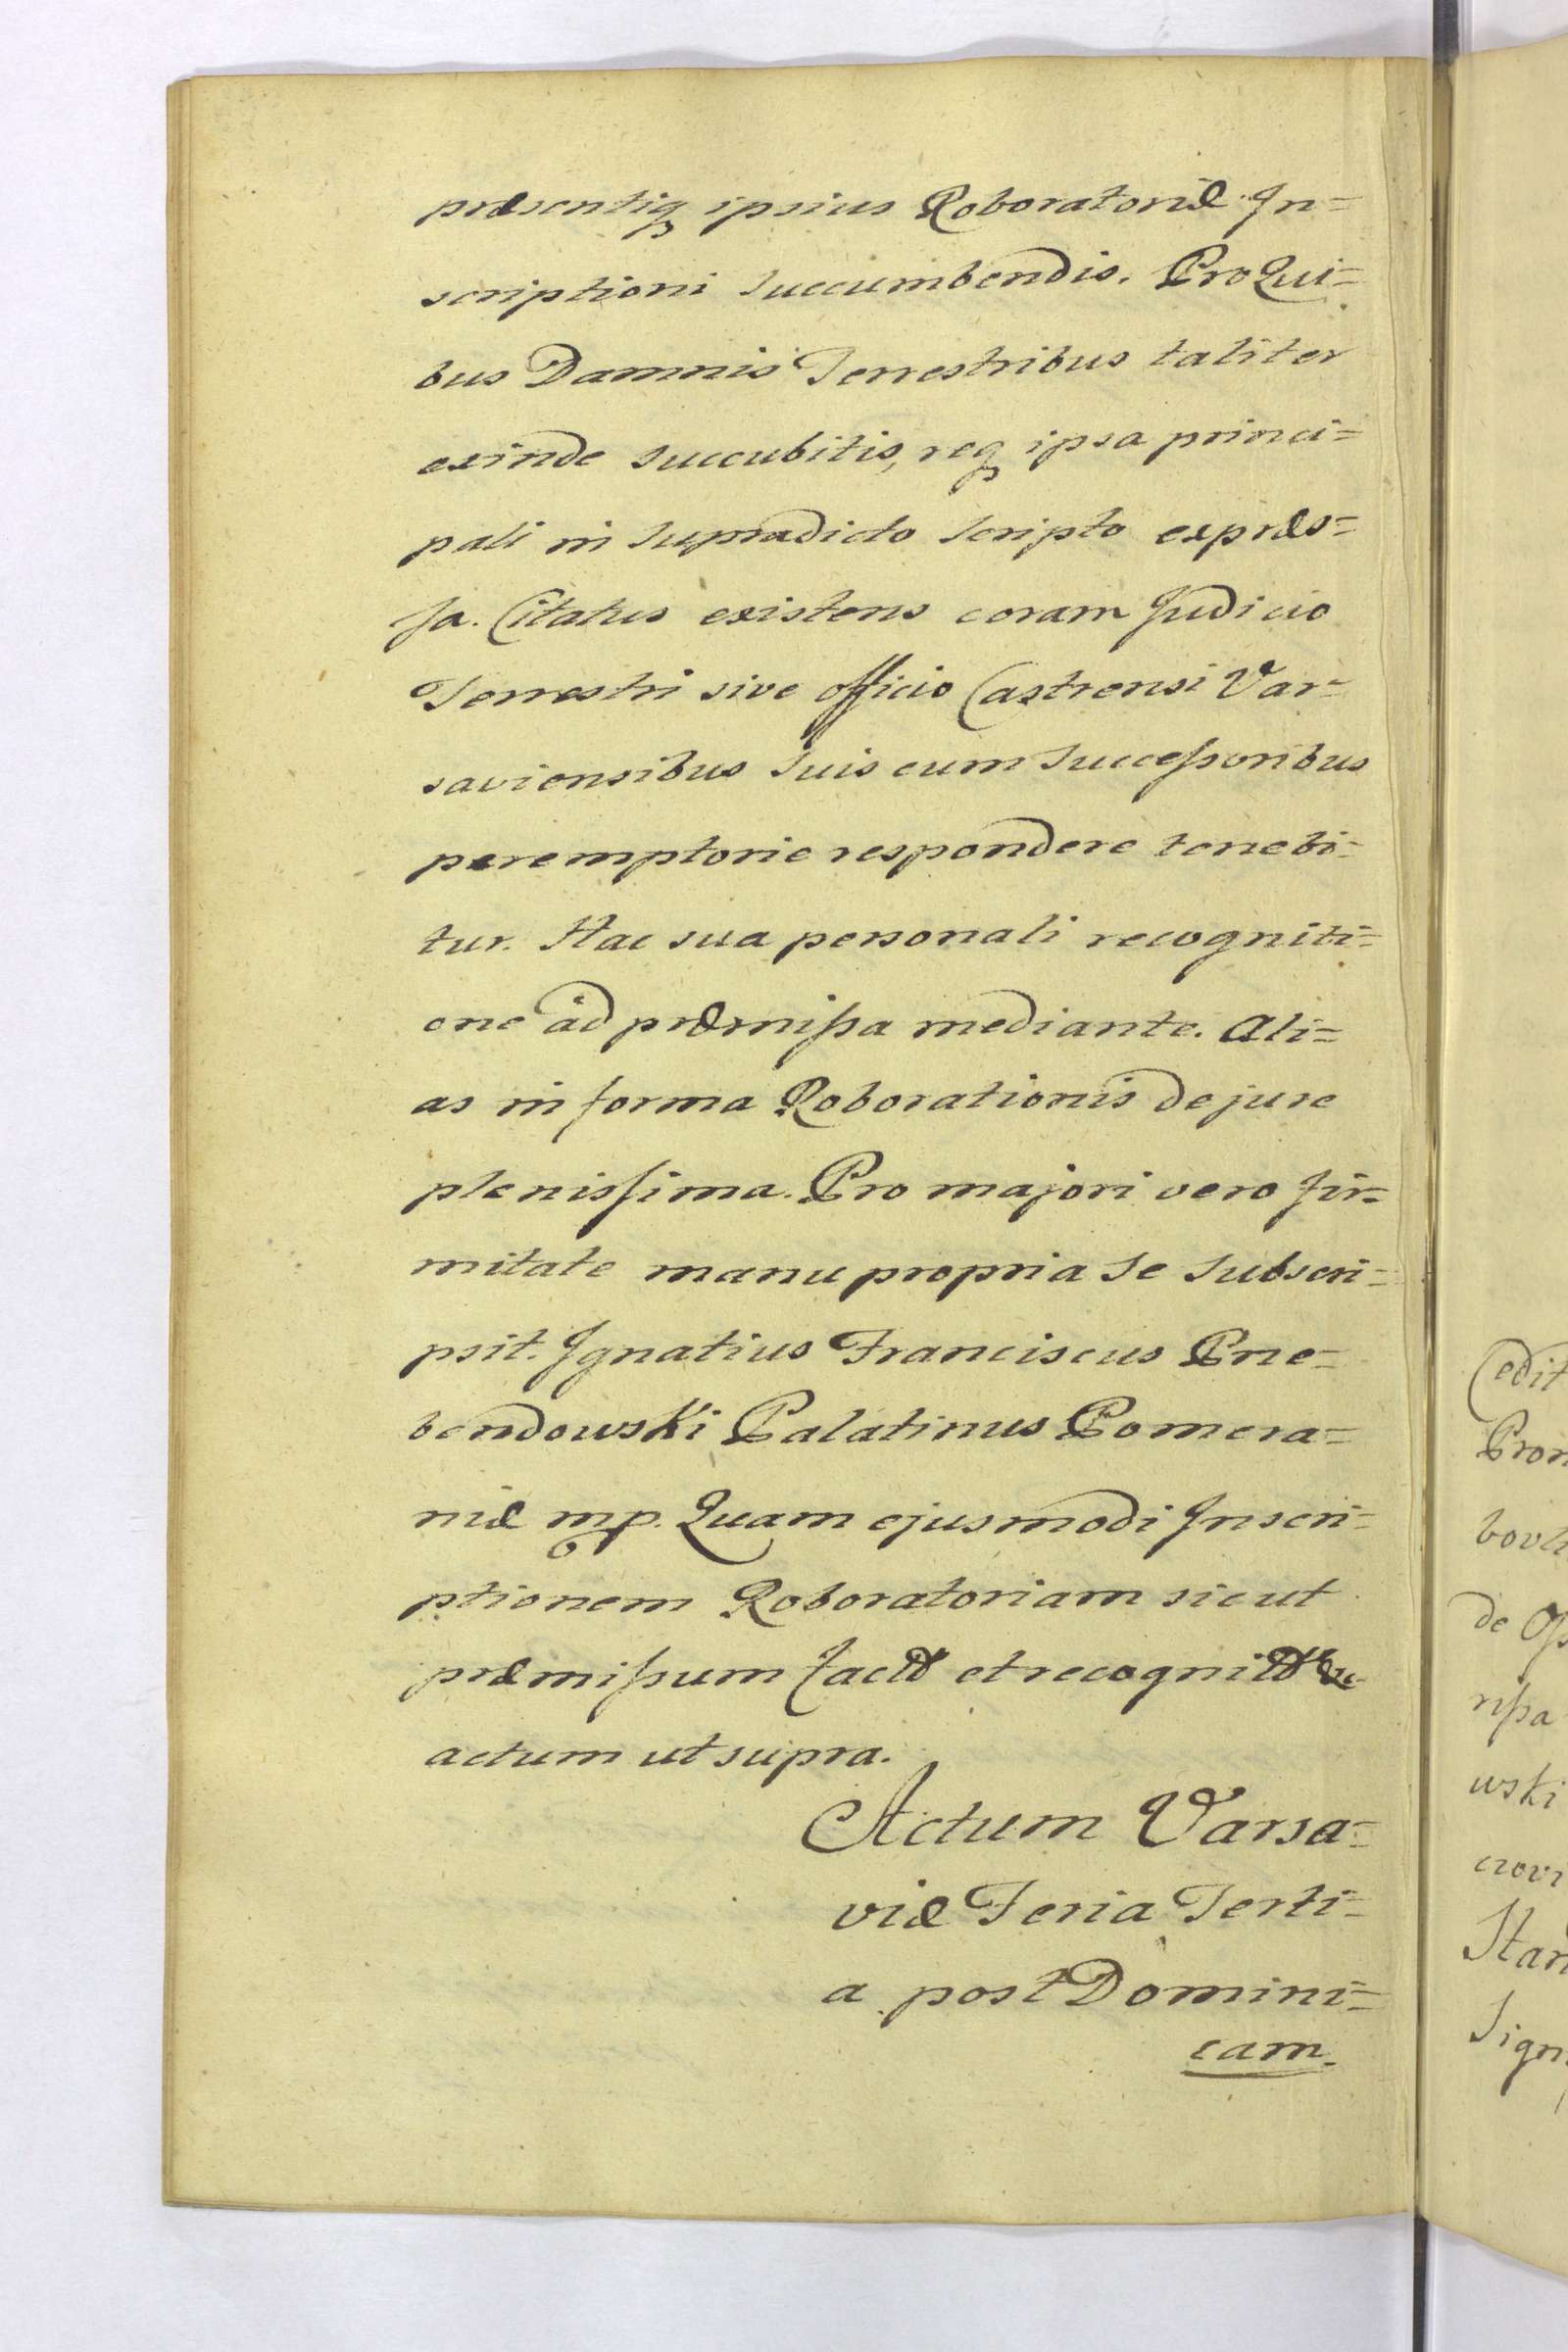 præsentiq ipsius Roboratoriæ In=
scriptioni succumbendis. Pro Qui=
bus Damnis Terrestribus taliter
exinde succubitis, req ipsa princi=
pali in supradicto scripto expræs=
sa. Citatus existens coram Judicio
Terrestri sive officio Castrensi Var=
saviensibus suis cum successoribus
peremptorie respondere tenebi=
tur. Hac sua personali recogniti=
one ad præmissa mediante. Ali=
as in forma Roborationis de jure
plenissima. Pro majori vero fir=
mitate manu propria se subscri=
psit. Ignatius Franciscus Prze=
bendowski Palatinus Pomera=
niæ mp. Quam ejusmodi Inscri=
ptionem Roboratoriam sicut
præmissum et
actum ut supra.
Actum Varsa=
viæ Feria Terti=
a post Domini=
cam.
Cedit
Pron
bovli
de
rissa
wski
crovi
Stan
Sign